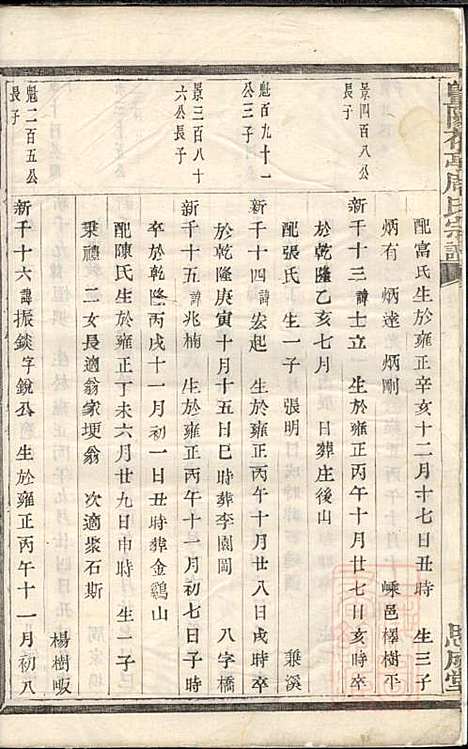 暨陽花亭周氏宗譜
思成堂
配富氏生於雍正辛亥十二月十七日丑時 生三子
炳有 炳達 炳剛 嵊邑樟樹平
景四百八公長子
新千十三 諱士立 生於雍正丙午十月廿七日亥時卒
於乾隆乙亥七月 日葬庄後山
配張氏 生一子 張明 乗溪
魁百九十一公三子
新千十四 諱宏起 生於雍正丙午十一月廿八日戌時卒
於乾隆庚寅十月十五日巳時葬李園岡 八字橋
景三百八十六公長子
新千十五 諱兆楠 生於雍正丙午十一月初七日子時
卒於乾隆丙戌十一月初一日丑時葬金鷄山
配陳氏生於雍正丁未六月廿九日申時 生一子
秉禮 二女長適翁家埂翁 次適聚石斯
楊樹畈
魁二百五公長子
新千十六 諱振錟字銳公 生於雍正丙午十一月初八